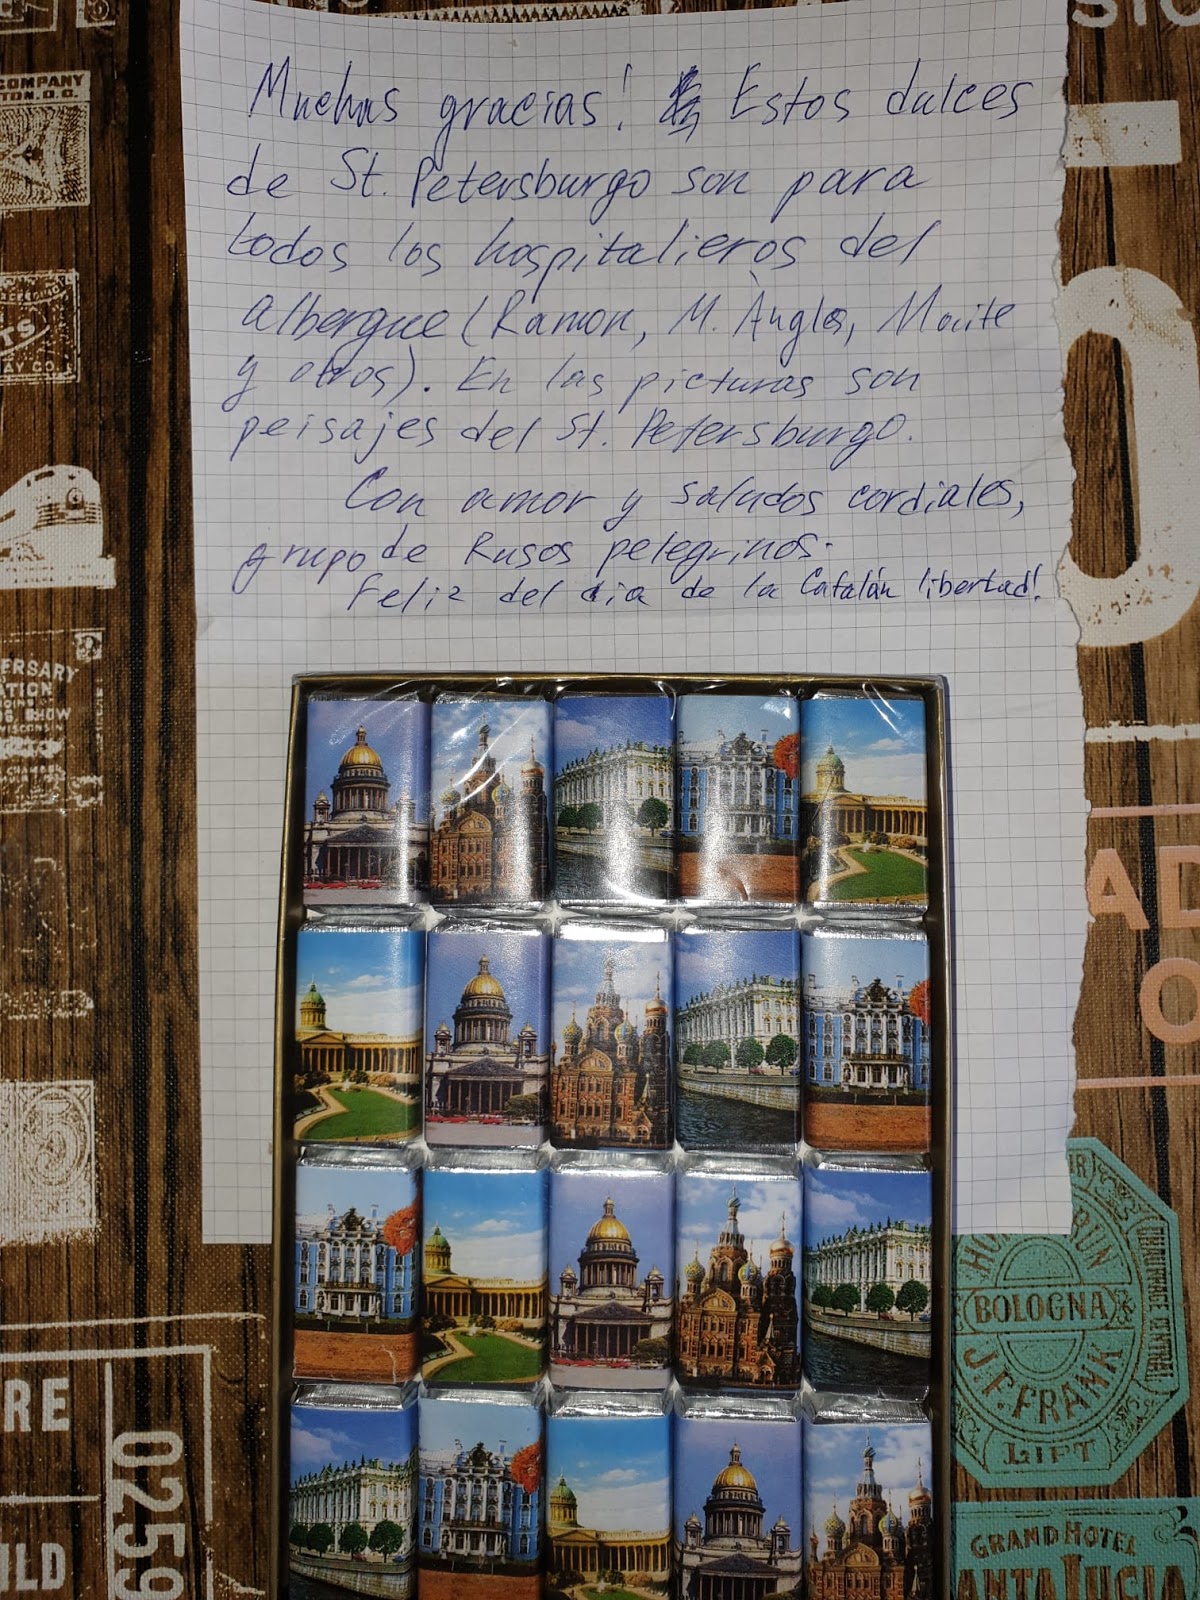 Muchas gracias! Estos dulces
de St. Petersburgo son para
todos los hospitalieros del
albergue (Ramon, M. Àngles, Maite
y otros). En las picturas son
peisajes del St. Petersburgo.
Con amor y saludos cordiales,
grupo de Rusos pelegrinos.
Feliz del dia de la Catalán libertad!
COMPANY
TON, D.C.
AY CO.
ERSARY
ATION
SHOW
WISCONSIN
RE
0259
ILD
AD
O
BOLOGNA
J.F. FRANK
LIFT
GRAND HOTEL
ANTALUCIA